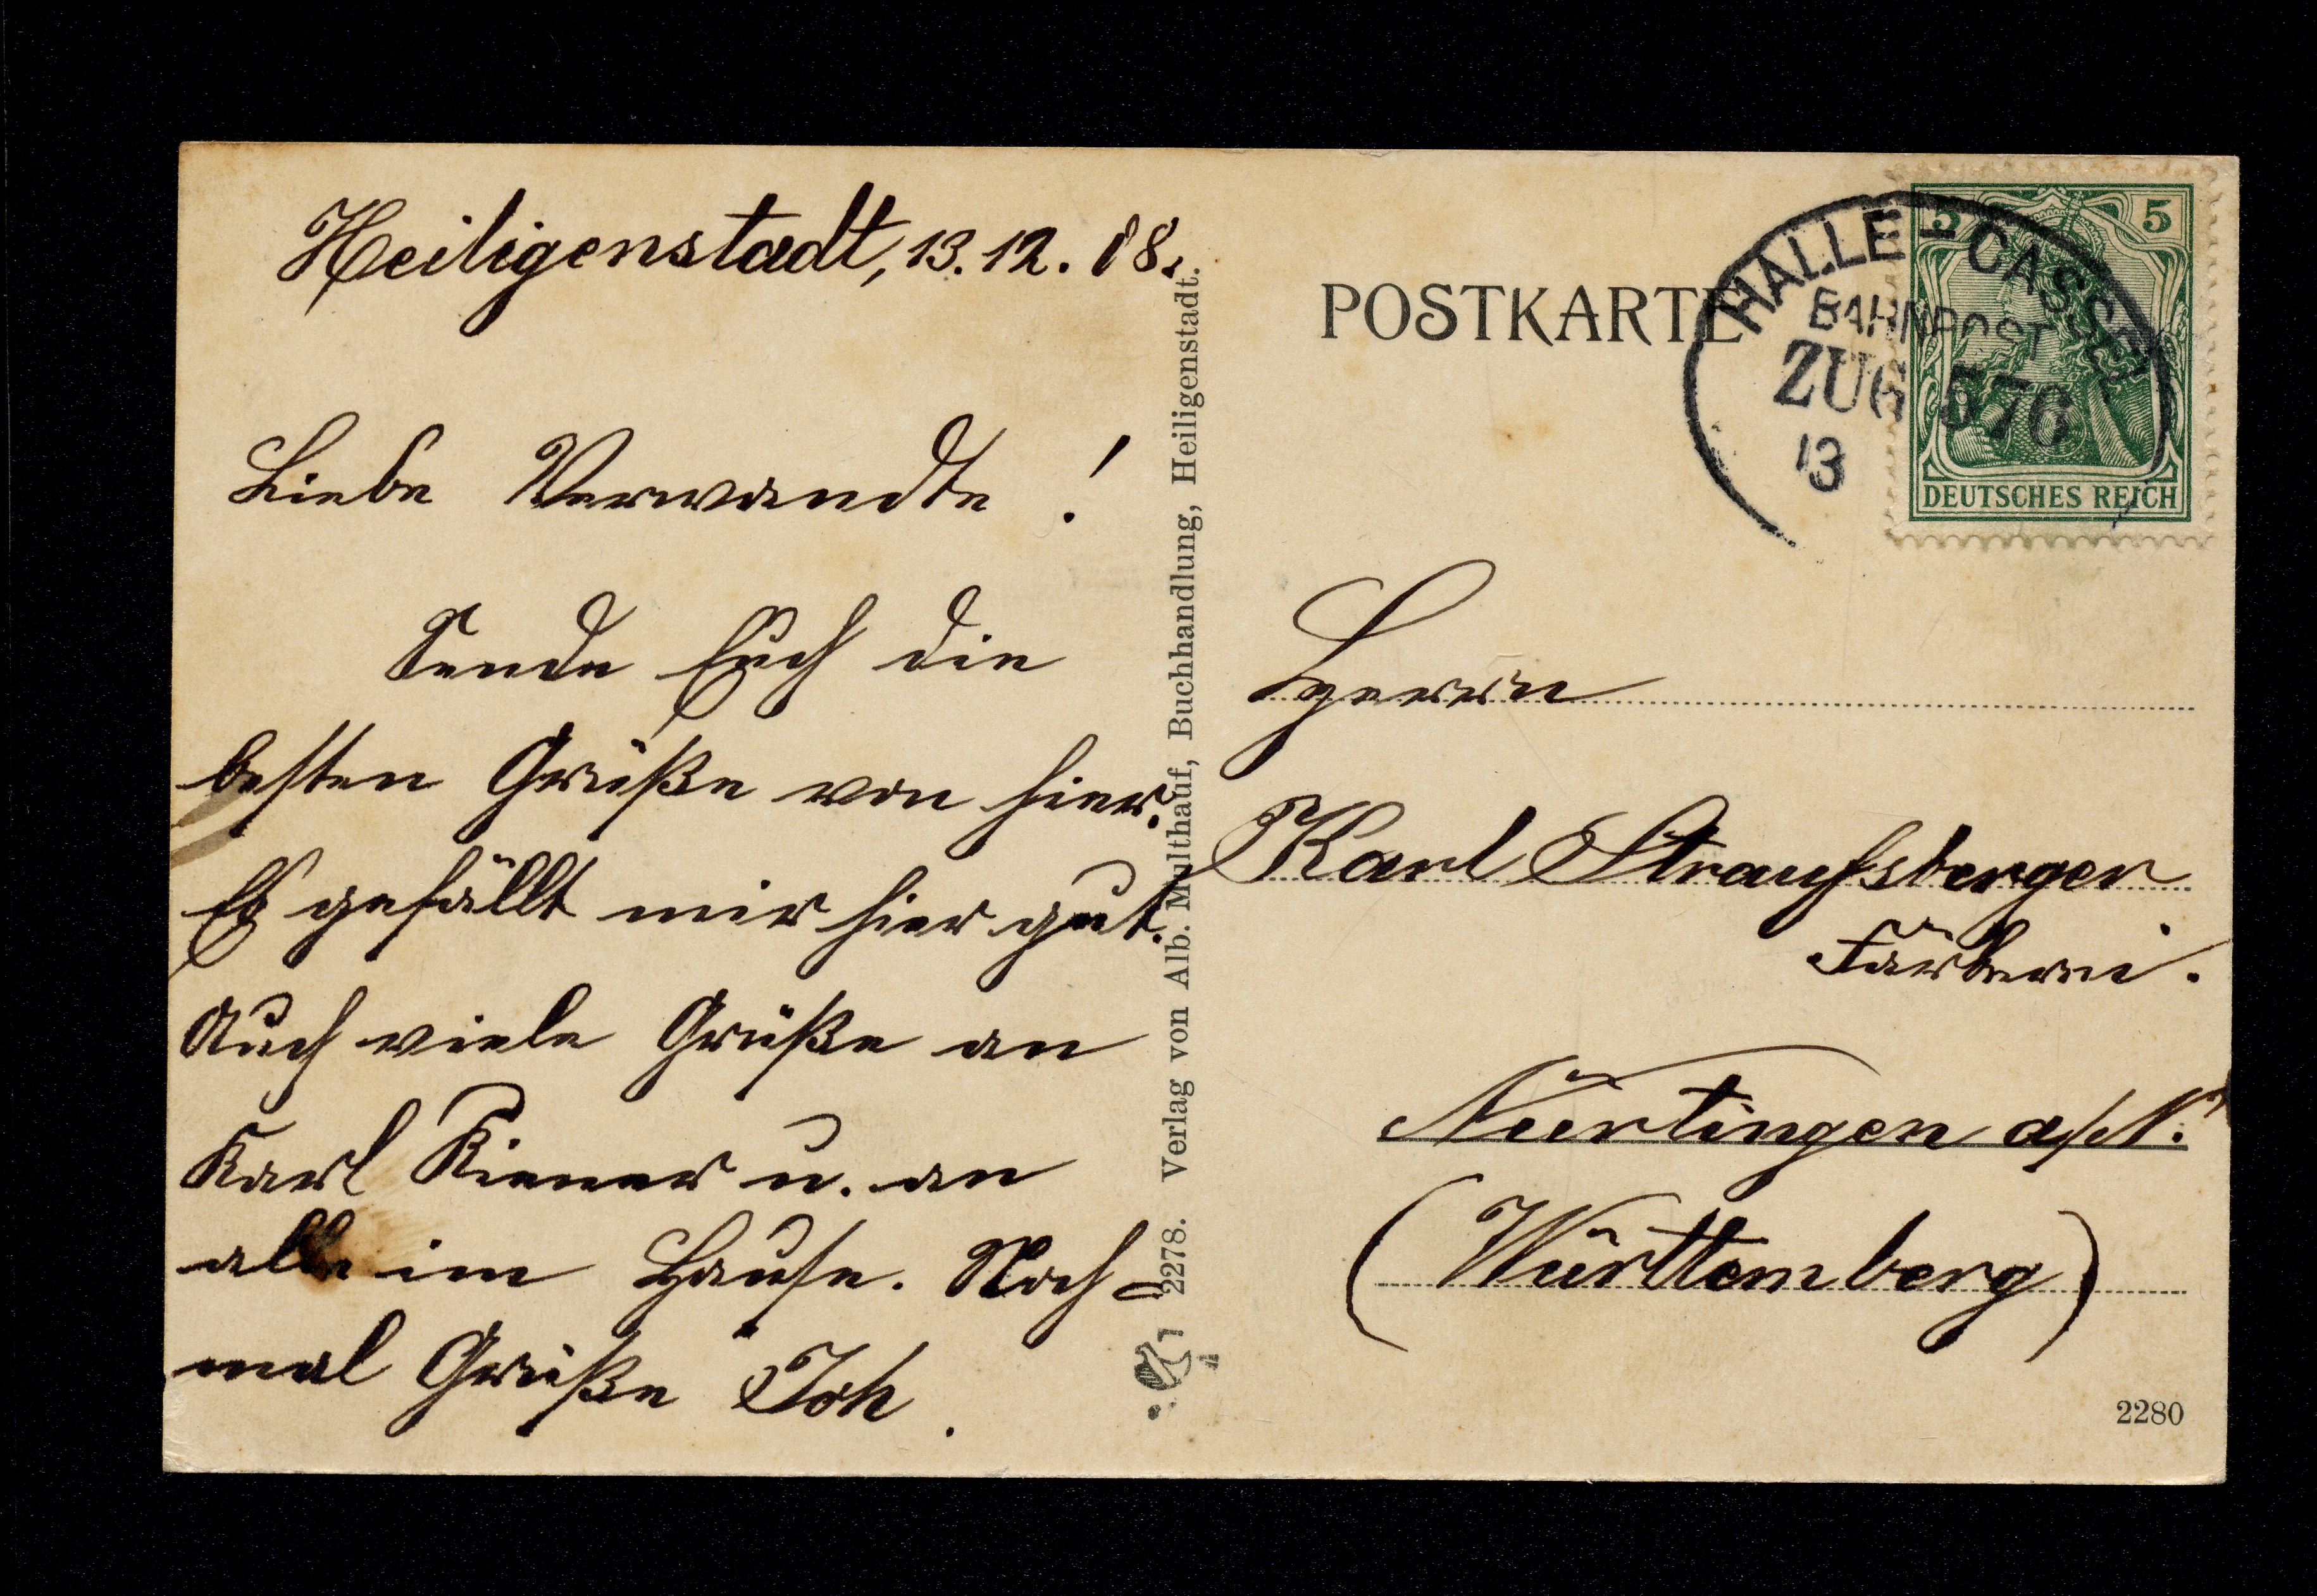 Heiligenstadt, 13.12.08.
Liebe Verwandte!
Sende Euch die
besten Grüße von hier.
Es gefällt mir hier gut.
Auch viele Grüße an
Karl Kiener u. an
alle im Hause. Noch=
mal Grüße Joh.
2278. Verlag von Alb. Multhauf, Buchhandlung, Heiligenstadt.
POSTKARTE
HALLE - CASSEL
BAHNPOST
ZUG 576
13
5 5
DEUTSCHES REICH
Herrn
Karl Straußberger
Färberei.
Nürtingen a/N.
(Württemberg)
2280